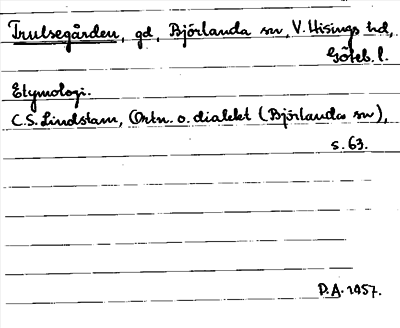 Trulsegården, gd, Björlanda sn, V. Hisings hd,
Göteb. l.
Etymologi.
C.S. Lindstam, Ortn. o. dialekt (Björlanda sn),
s. 63.
P.A. 1957.